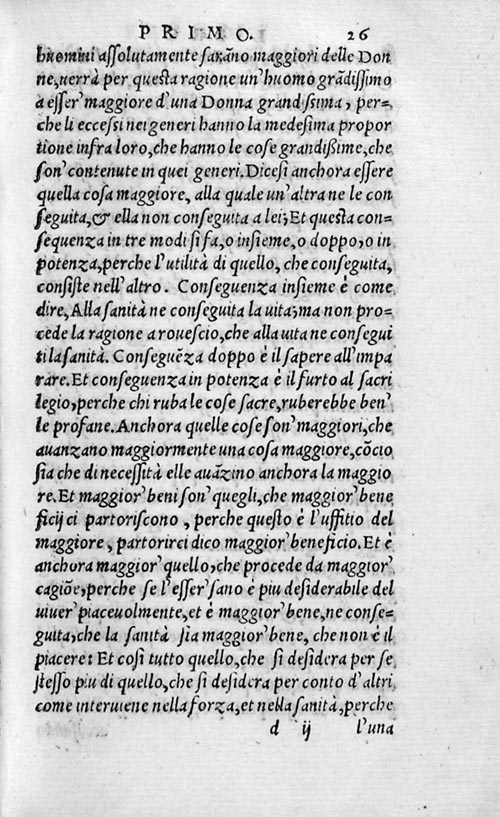 PRIMO. 26
huomini assolutamente sarãno maggiori delle Don
ne, uerrà per questa ragione un'huomo grãdissimo
a esser' maggiore d'una Donna grandissima, per-
che li eccessi nei generi hanno la medesima propor
tione infra loro, che hanno le cose grandissime, che
son' contenute in quei generi. Dicesi anchora essere
quella cosa maggiore, alla quale un'altra ne le con
seguita, & ella non conseguita a lei; Et questa con-
sequenza in tre modi si fa, o insieme, o doppo, o in
potenza, perche l'utilità di quello, che conseguita,
consiste nell'altro. Conseguenza insieme è come
dire, Alla sanità ne conseguita la uita; ma non pro-
cede la ragione a rouescio, che alla uita ne consegui
ti la sanità. Conseguẽza doppo è il sapere all'impa
rare. Et conseguenza in potenza è il furto al sacri
legio, perche chi ruba le cose sacre, ruberebbe ben'
le profane. Anchora quelle cose son' maggiori, che
auanzano maggiormente una cosa maggiore, cõcio
sia che di necessità elle auãzino anchora la maggio
re. Et maggior' beni son' quegli, che maggior' bene
ficij ci partoriscono, perche questo è l'uffitio del
maggiore, partorirci dico maggior' beneficio. Et è
anchora maggior' quello, che procede da maggior'
cagiõe, perche se l'esser' sano è piu desiderabile del
uiuer' piaceuolmente, et è maggior' bene, ne conse-
guita, che la sanità sia maggior' bene, che non è il
piacere: Et cosi tutto quello, che si desidera per se
stesso piu di quello, che si desidera per conto d'altri,
come interuiene nella forza, et nella sanità, perche
d ij l'una